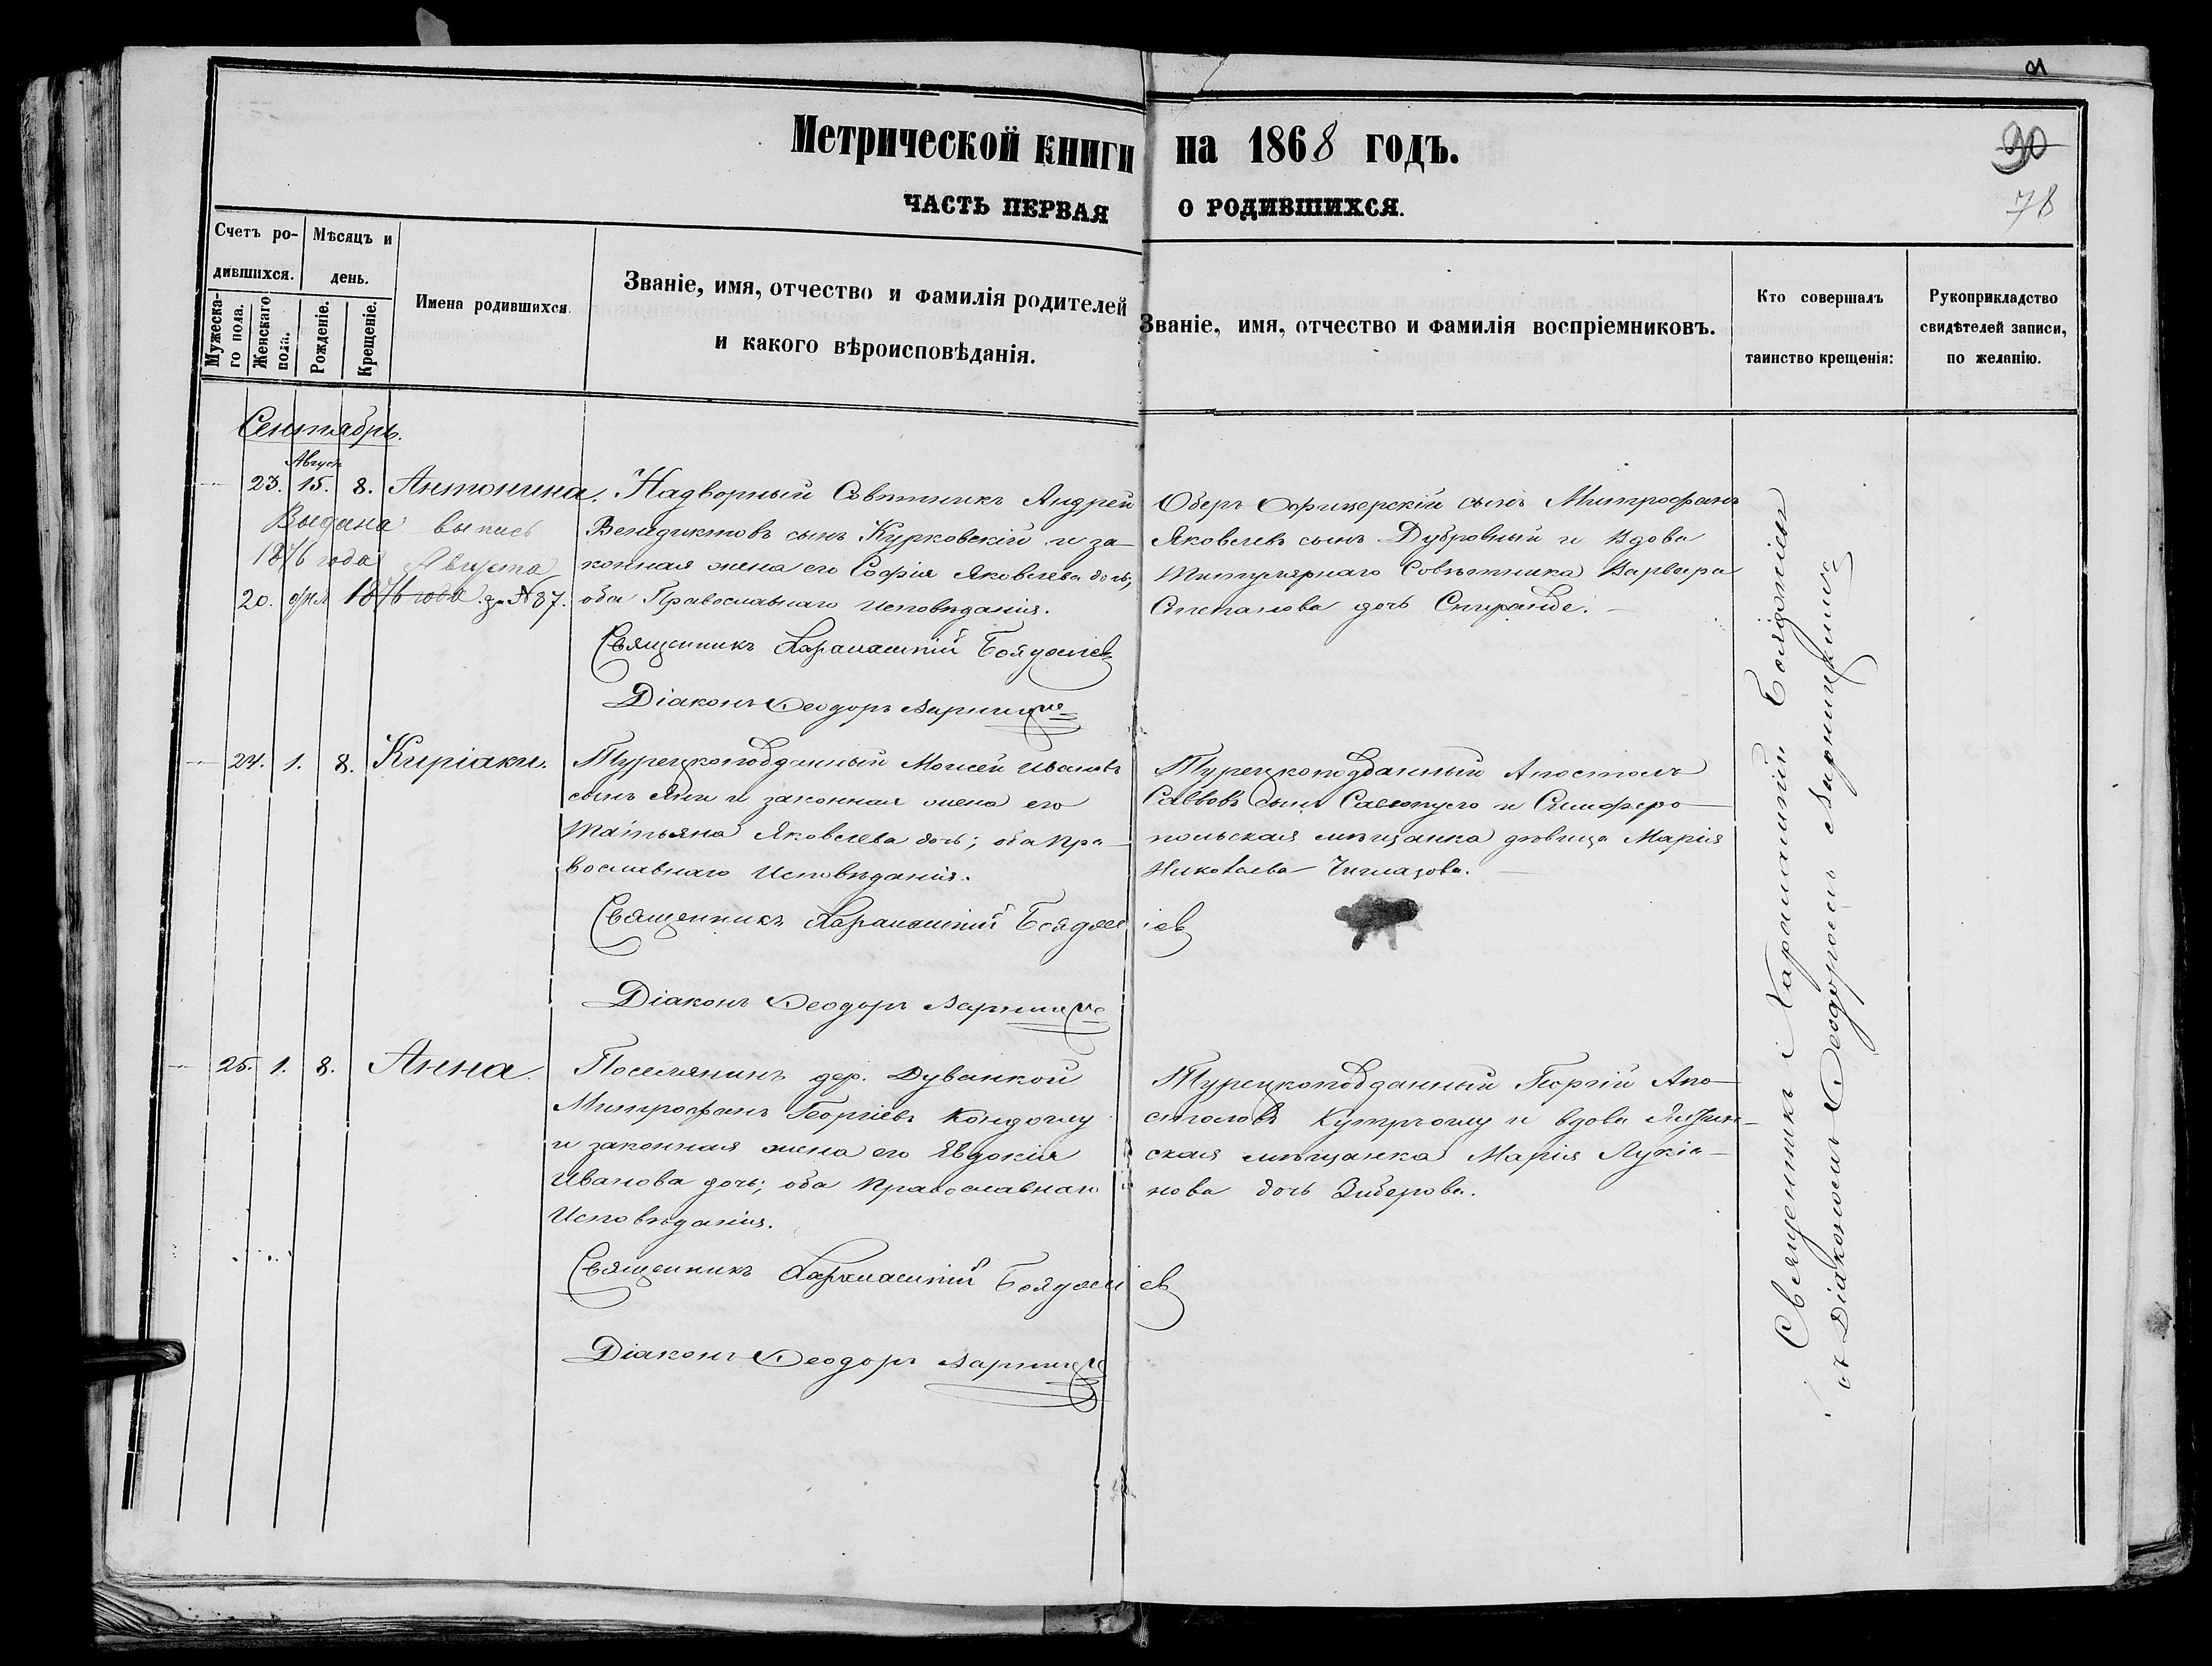 Метрической книги на 1868 годъ.
90
78
ЧАСТЬ ПЕРВАЯ О РОДИВШИХСЯ.
Счетъ ро-
дившихся.
Мужеска-
го пола.
Женскаго
пола.
Мѣсяцъ и
день.
Рожденіе.
Крещеніе.
Имена родившихся.
Званіе, имя, отчество и фамилія родителей
и какого вѣроисповѣданія.
Званіе, имя, отчество и фамилія воспріемниковъ.
Кто совершалъ
таинство крещенія:
Рукоприкладство
свидѣтелей записи,
по желанію.
Сентябрь.
Август
23. 15. 8. Антонина.
Выдана выпись
1876 года Августа
20. дня 1876 года за № 87.
Надворный Совѣтникъ Андрей
Венедиктовъ сынъ Курковскій и за-
конная жена его Софія Яковлева дочь;
оба Православнаго Исповѣданія.
Священникъ Харалампій Бояджіев
Діаконъ Ѳеодоръ
Оберъ Офицерскій сынъ Митрофанъ
Яковлевъ сынъ Дубровный и Вдова
Титулярнаго Совѣтника Варвара
Степанова дочь Спиранде.
24. 1. 8. Киріаки.
Турецкоподданный Моисей Ивановъ
сынъ Яни и законная жена его
Татьяна Яковлева дочь; оба Пра-
вославнаго Исповѣданія.
Священникъ Харалампій Бояджіев
Діаконъ Ѳеодоръ
Турецкоподданный Апостолъ
Саввовъ сынъ и Симферо-
польская мѣщанка дѣвица Марія
Николаева
25. 1. 8. Анна.
Поселянинъ дер. Дуванкой
Митрофанъ Георгіевъ Кондоглу
и законная жена его Евдокія
Иванова дочь; оба Православнаго
Исповѣданія.
Священникъ Харалампій Бояджіев
Діаконъ Ѳеодоръ
Турецкоподданный Георгій Апо-
столовъ и вдова Ялтин-
ская мѣщанка Марія Лукіа-
нова дочь Зиберова.
Священникъ Харалампій Бояджіевъ
съ Діакономъ Ѳеодоромъ